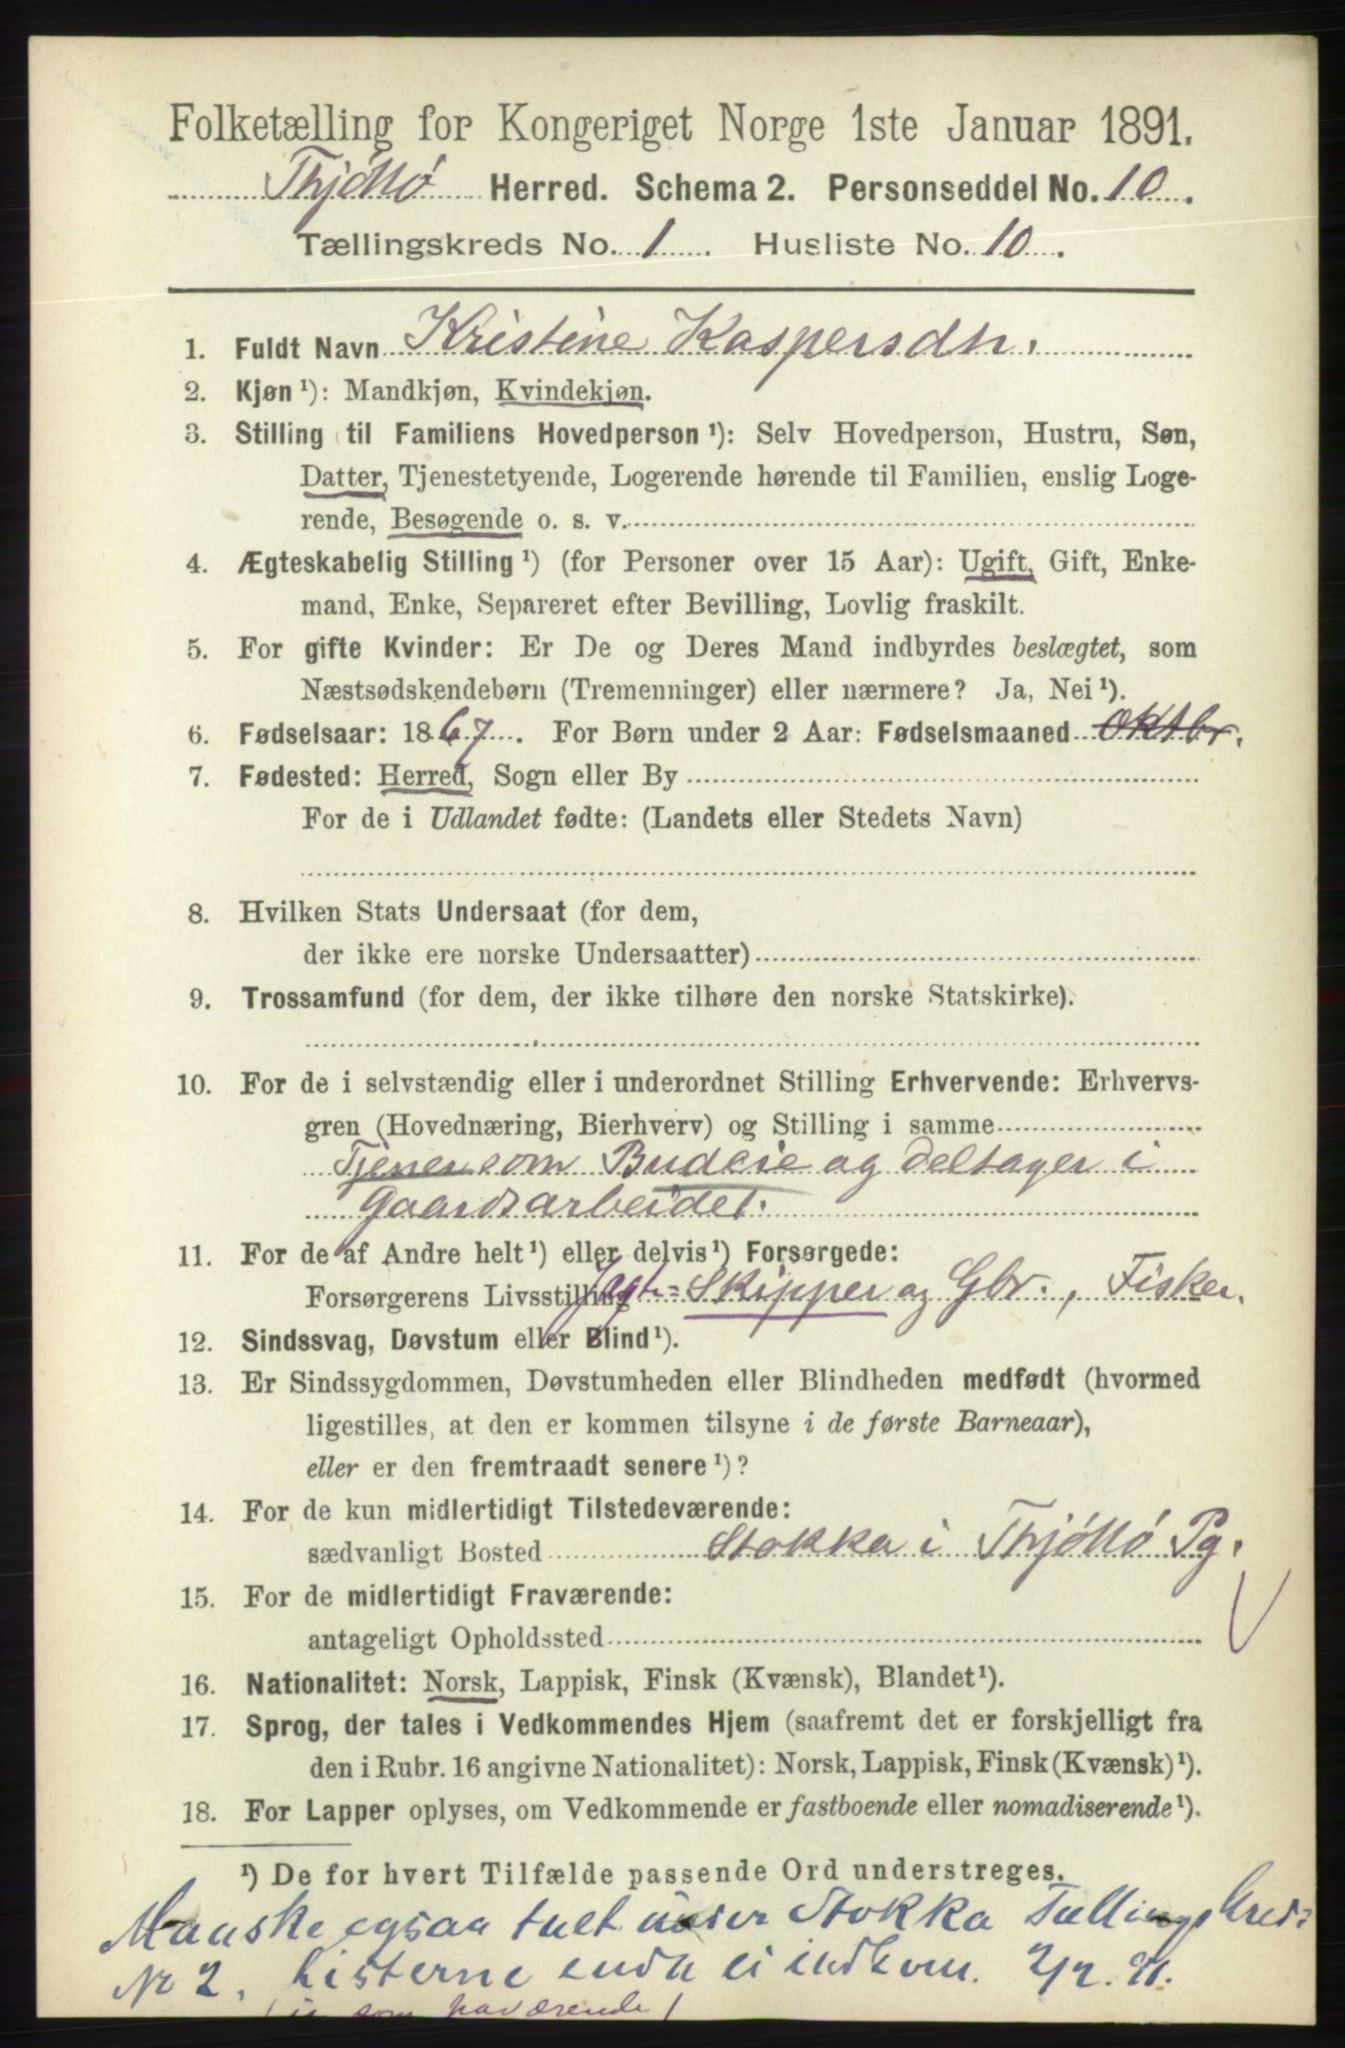 Folketælling for Kongeriget Norge 1ste Januar 1891.
Thjöttö Herred. Schema 2. Personseddel No. 10.
Tællingskreds No. 1. Husliste No. 10.
1. Fuldt Navn Kristine Kaspersdtr.
2. Kjøn¹): Mandkjøn, Kvindekjøn.
3. Stilling til Familiens Hovedperson¹): Selv Hovedperson, Hustru, Søn,
Datter, Tjenestetyende, Logerende hørende til Familien, enslig Loge-
rende, Besøgende o. s. v.
4. Ægteskabelig Stilling¹) (for Personer over 15 Aar): Ugift, Gift, Enke-
mand, Enke, Separeret efter Bevilling, Lovlig fraskilt.
5. For gifte Kvinder: Er De og Deres Mand indbyrdes beslægtet, som
Næstsødskendebørn (Tremenninger) eller nærmere? Ja, Nei¹).
6. Fødselsaar: 1867. For Børn under 2 Aar: Fødselsmaaned Oktbr.
7. Fødested: Herred, Sogn eller By
For de i Udlandet fødte: (Landets eller Stedets Navn)
8. Hvilken Stats Undersaat (for dem,
der ikke ere norske Undersaatter)
9. Trossamfund (for dem, der ikke tilhøre den norske Statskirke).
10. For de i selvstændig eller i underordnet Stilling Erhvervende: Erhvervs-
gren (Hovednæring, Bierhverv) og Stilling i samme
Tjener som Budeie og deltager i
Gaardsarbeidet.
11. For de af Andre helt¹) eller delvis¹) Forsørgede:
Forsørgerens Livsstilling Jagt=Skipper og Gbr., Fisker.
12. Sindssvag, Døvstum eller Blind¹).
13. Er Sindssygdommen, Døvstumheden eller Blindheden medfødt (hvormed
ligestilles, at den er kommen tilsyne i de første Barneaar),
eller er den fremtraadt senere¹)?
14. For de kun midlertidigt Tilstedeværende:
sædvanligt Bosted Stokka i Thjöttö Pg.
15. For de midlertidigt Fraværende:
antageligt Opholdssted
16. Nationalitet: Norsk, Lappisk, Finsk (Kvænsk), Blandet¹).
17. Sprog, der tales i Vedkommendes Hjem (saafremt det er forskjelligt fra
den i Rubr. 16 angivne Nationalitet): Norsk, Lappisk, Finsk (Kvænsk)¹).
18. For Lapper oplyses, om Vedkommende er fastboende eller nomadiserende¹).
¹) De for hvert Tilfælde passende Ord understreges.
Maaske ogsaa talt under Stokka Tællingskreds
Nr 2. Listerne endn ei indkom. 2/2. 91.
som